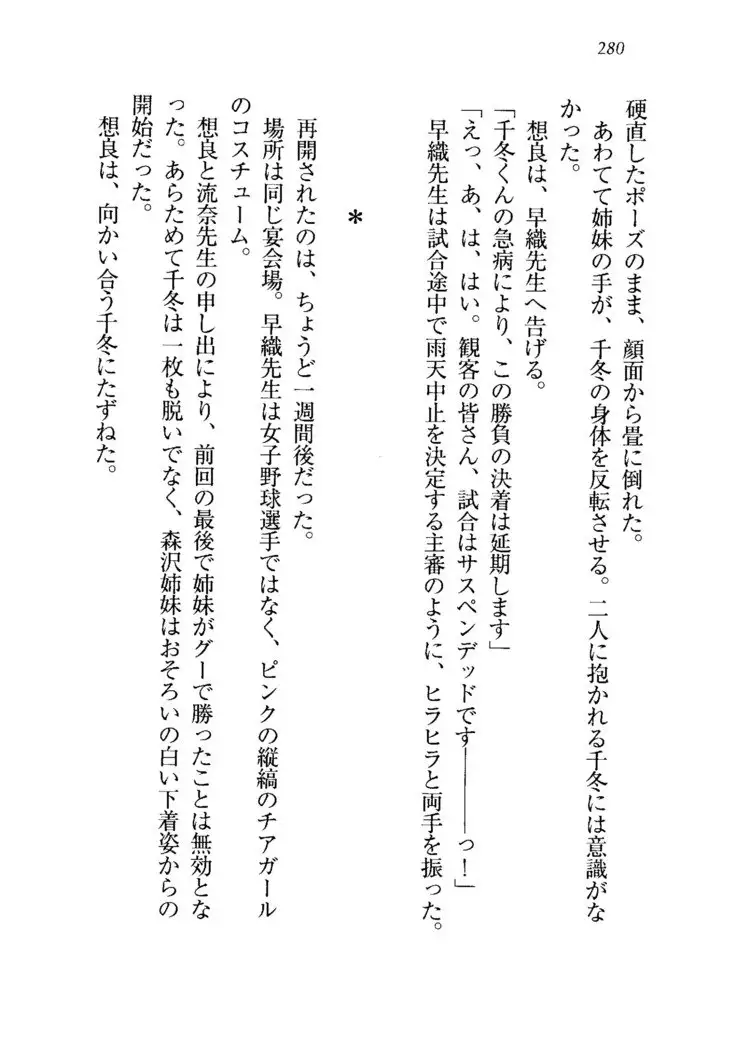 280
硬直したポーズのまま、顔面から畳に倒れた。
あわてて姉妹の手が、千冬の身体を反転させる。二人に抱かれる千冬には意識がな
かった。
想良は、早織先生へ告げる。
「千冬くんの急病により、この勝負の決着は延期します」
「えっ、あ、は、はい。観客の皆さん、試合はサスペンデッドです―――っ！」
早織先生は試合途中で雨天中止を決定する主審のように、ヒラヒラと両手を振った。
＊
再開されたのは、ちょうど一週間後だった。
場所は同じ宴会場。早織先生は女子野球選手ではなく、ピンクの縦縞のチアガール
のコスチューム。
想良と流奈先生の申し出により、前回の最後で姉妹がグーで勝ったことは無効とな
った。あらためて千冬は一枚も脱いでなく、森沢姉妹はおそろいの白い下着姿からの
開始だった。
想良は、向かい合う千冬にたずねた。